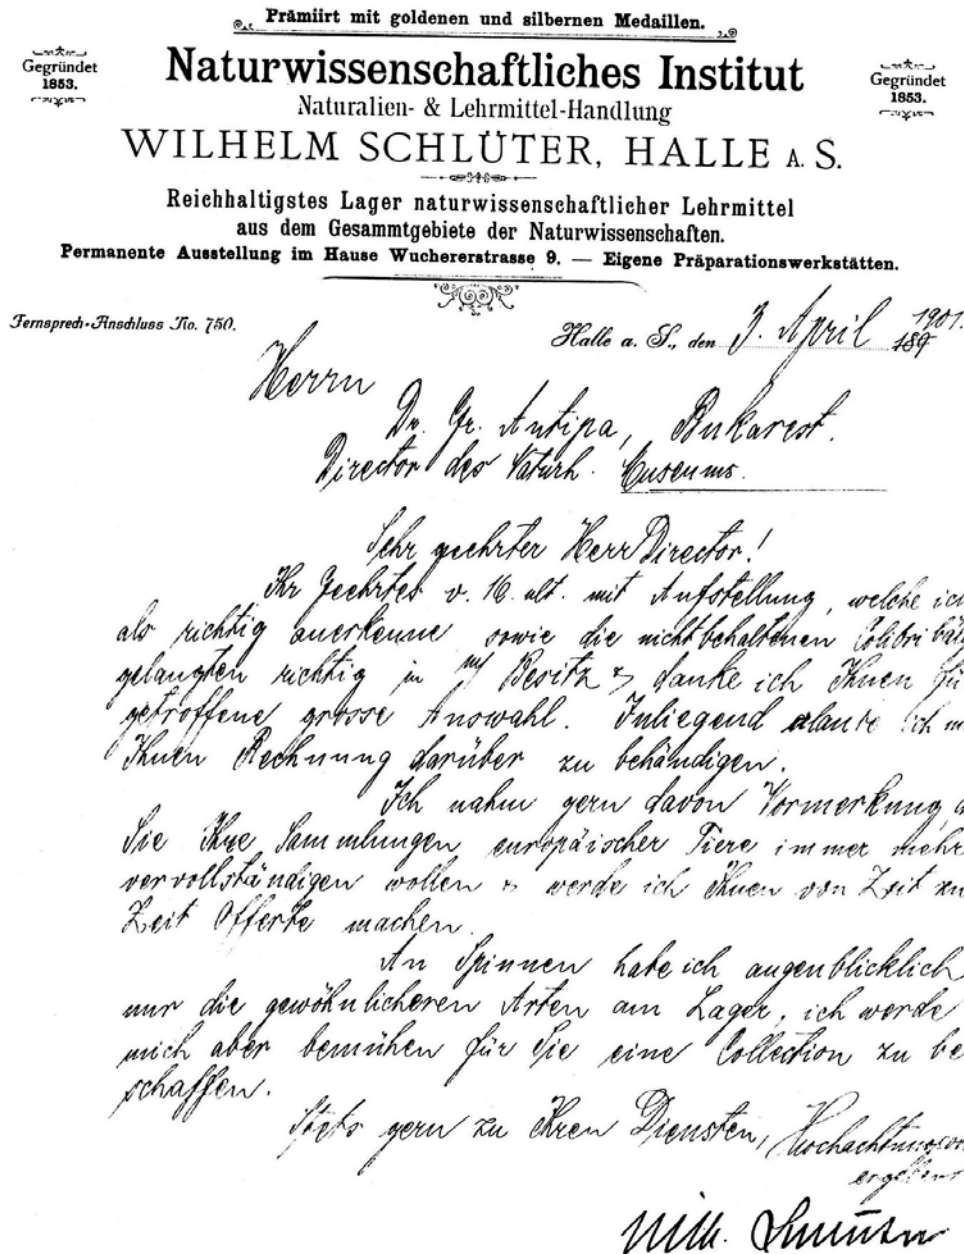 Prämiirt mit goldenen und silbernen Medaillen.
Gegründet
1853.
Naturwissenschaftliches Institut
Gegründet
1853.
Naturalien- & Lehrmittel-Handlung
WILHELM SCHLÜTER, HALLE A. S.
Reichhaltigstes Lager naturwissenschaftlicher Lehrmittel
aus dem Gesammtgebiete der Naturwissenschaften.
Permanente Ausstellung im Hause Wuchererstrasse 9. — Eigene Präparationswerkstätten.
Fernsprech-Anschluss No. 750.
Halle a. S., den 3. April 1901.
189
Herrn
Dr. Gr. Antipa, Bukarest.
Director des Naturh. Museums.
Sehr geehrter Herr Director!
Ihr Geehrtes v. 16. ult. mit Aufstellung, welche ich
als richtig anerkenne sowie die nichtbehaltenen Colibribälg
gelangten richtig in m/ Besitz & danke ich Ihnen fü
getroffene grosse Auswahl. Inliegend erlaube ich m
Ihnen Rechnung darüber zu behändigen.
Ich nahm gern davon Vormerkung, d
Sie Ihre Sammlungen europäischer Tiere immer mehr
vervollständigen wollen & werde ich Ihnen von Zeit zu
Zeit Offerte machen.
An Spinnen habe ich augenblicklich
nur die gewöhnlicheren Arten am Lager, ich werde
mich aber bemühen für Sie eine Collection zu be
schaffen.
Stets gern zu Ihren Diensten, Hochachtungsvo
ergebenst
Wilh. Schlüter